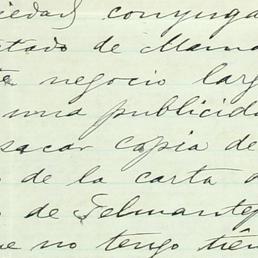 iedad conyuga
tado de Mama
negocio larg
una publicida
sacar copia de
de la carta
de Telmantep
e no tengo tiem